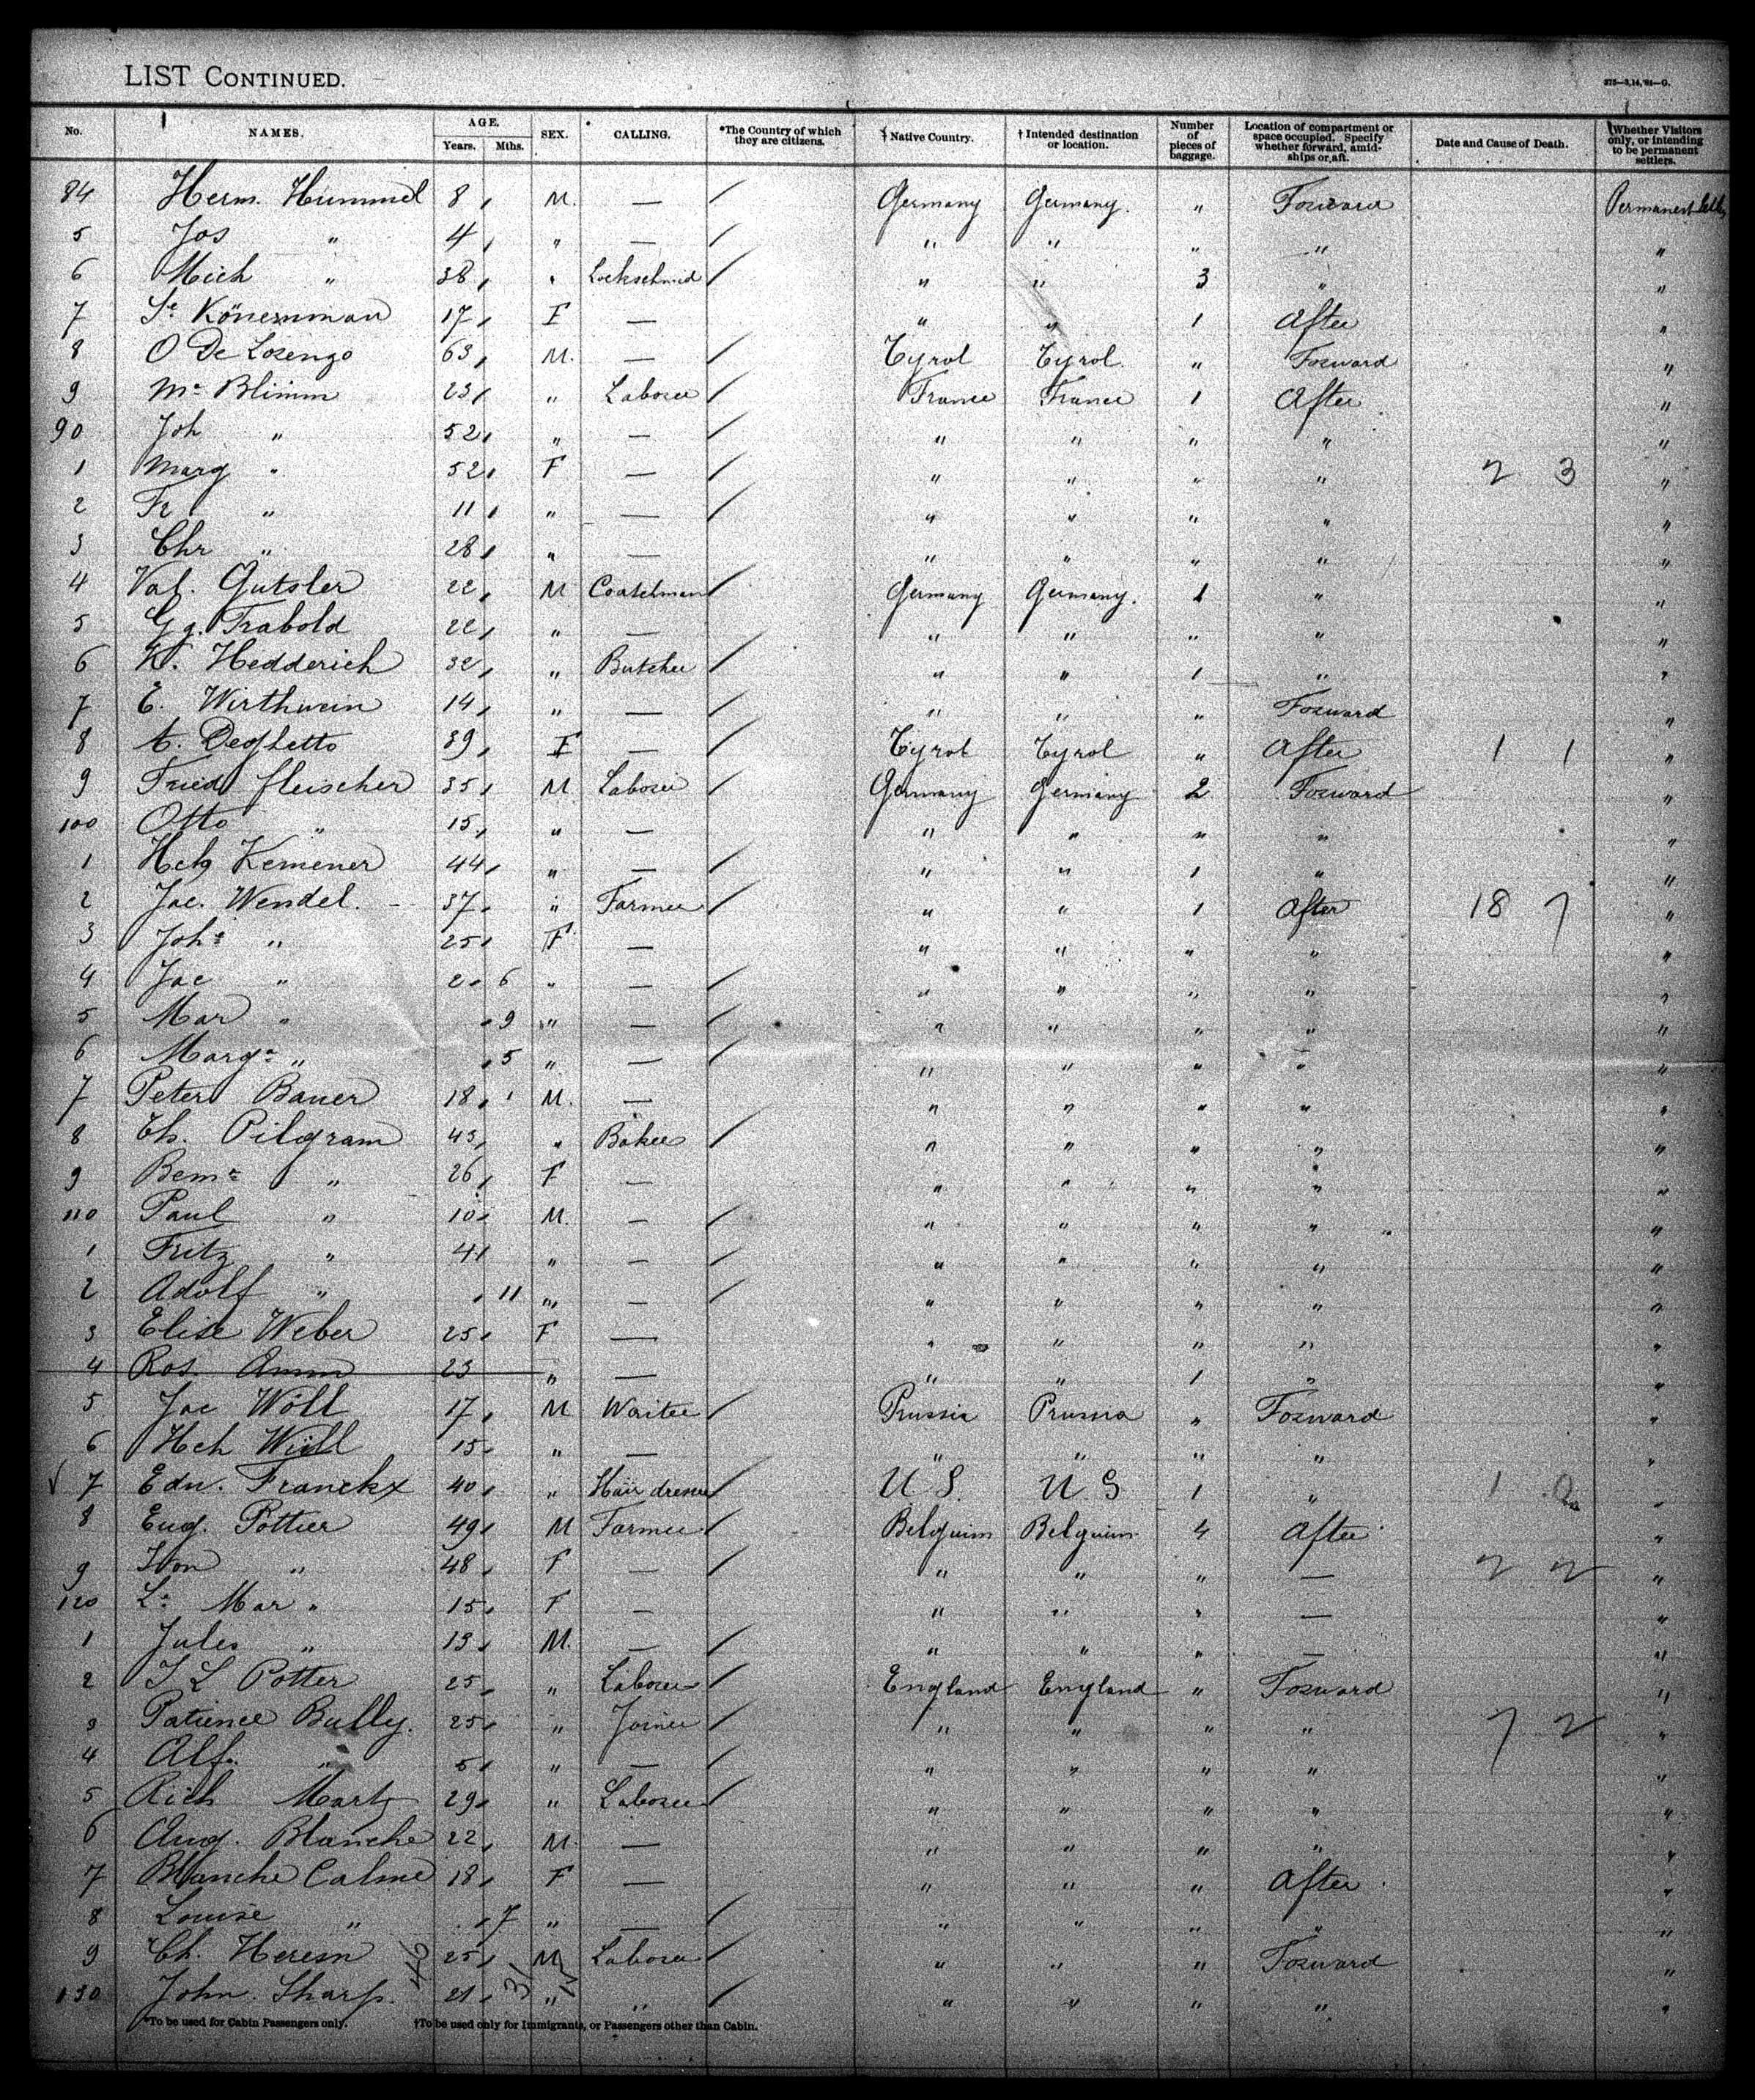 LIST CONTINUED.
375—3,14,'91—G.
No. NAMES. AGE. Years. Mths. SEX. CALLING. *The Country of which they are citizens. † Native Country. † Intended destination or location. Number of pieces of baggage. Location of compartment or space occupied. Specify whether forward, amidships or aft. Date and Cause of Death. Whether Visitors only, or intending to be permanent settlers.
84 Herm. Hummel 8 M. — / Germany Germany. " Forward Permanent
5 Jos " 4 " — / " " " " "
6 Mich " 38 " Lockschmid / " " 3 " "
7 Könernman 17 F — " " 1 After "
8 O De Lorenzo 63 M. — / Tyrol Tyrol. " Forward "
9 Ma Blimm 23 " Laborer / France France 1 After "
90 Joh " 52 " — / " " " " "
1 Marg " 52 F — / " " " " 2 3 "
2 Fr " 11 " — / " " " " "
3 Chr " 28 " — " " " " "
4 Val. Gutsler 22 M Coatchman / Germany Germany. 1 " "
5 Gg. Trabold 22 " — " " " " "
6 K. Hedderich 32 " Butcher / " " 1 " "
7 E. Wirthwein 14 " — / " " " Forward "
8 A. 39 F — / Tyrol Tyrol " After 1 1 "
9 Fried fleischer 35 M Laborer / Germany Germany 2 Forward "
100 Otto " 15 " — " " " " "
1 Hch Kemener 44 " — / " " 1 " "
2 Jac. Wendel. 37 " Farmer / " " 1 After 18 7 "
3 Joha " 25 F — " " " " "
4 Jac " 2 6 " — / " " " " "
5 Mar " 9 " — / " " " " "
6 Marga " 5 " — / " " " " "
7 Peter Bauer 18 M. — " " " " "
8 Ch. Pilgram 43 " Baker / " " " " "
9 " 26 F — " " " " "
110 Paul " 10 M. — / " " " " "
1 Fritz " 4 " — / " " " " "
2 Adolf " 11 " — / " " " " "
3 Elise Weber 25 F — " " " " "
4 Ros. Amm 23 " — " " 1 " "
5 Jac Wöll 17 M Waiter / Prussia Prussia " Forward "
6 Hch Wüll 15 " — " " " " "
√ 7 Edw. Franckx 40 " Hair dresser / U S. U. S 1 " 1 "
8 Eug. Pottier 49 M Farmer / Belguim Belguim 4 After "
9 " 48 F — / " " " — 2 2 "
120 Mar " 15 F — " " " — "
1 Jules " 13 M. — / " " " — "
2 J L Potter 25 " Laborer / England England " Forward "
3 Patience Bully. 25 " Joiner / " " " " 7 2 "
4 Alf. " 5 " — / " " " " "
5 Rich 29 " Laborer / " " " " "
6 Aug. Blanche 22 M. — " " " " "
7 Blanche Calme 18 F — " " " After "
8 Louise " 7 " — / " " " " "
9 Ch. Heresn 25 M Laborer / " " " Forward "
130 John Sharp. 21 " " / " " " " "
46 31 15
*To be used for Cabin Passengers only. †To be used only for Immigrants, or Passengers other than Cabin.